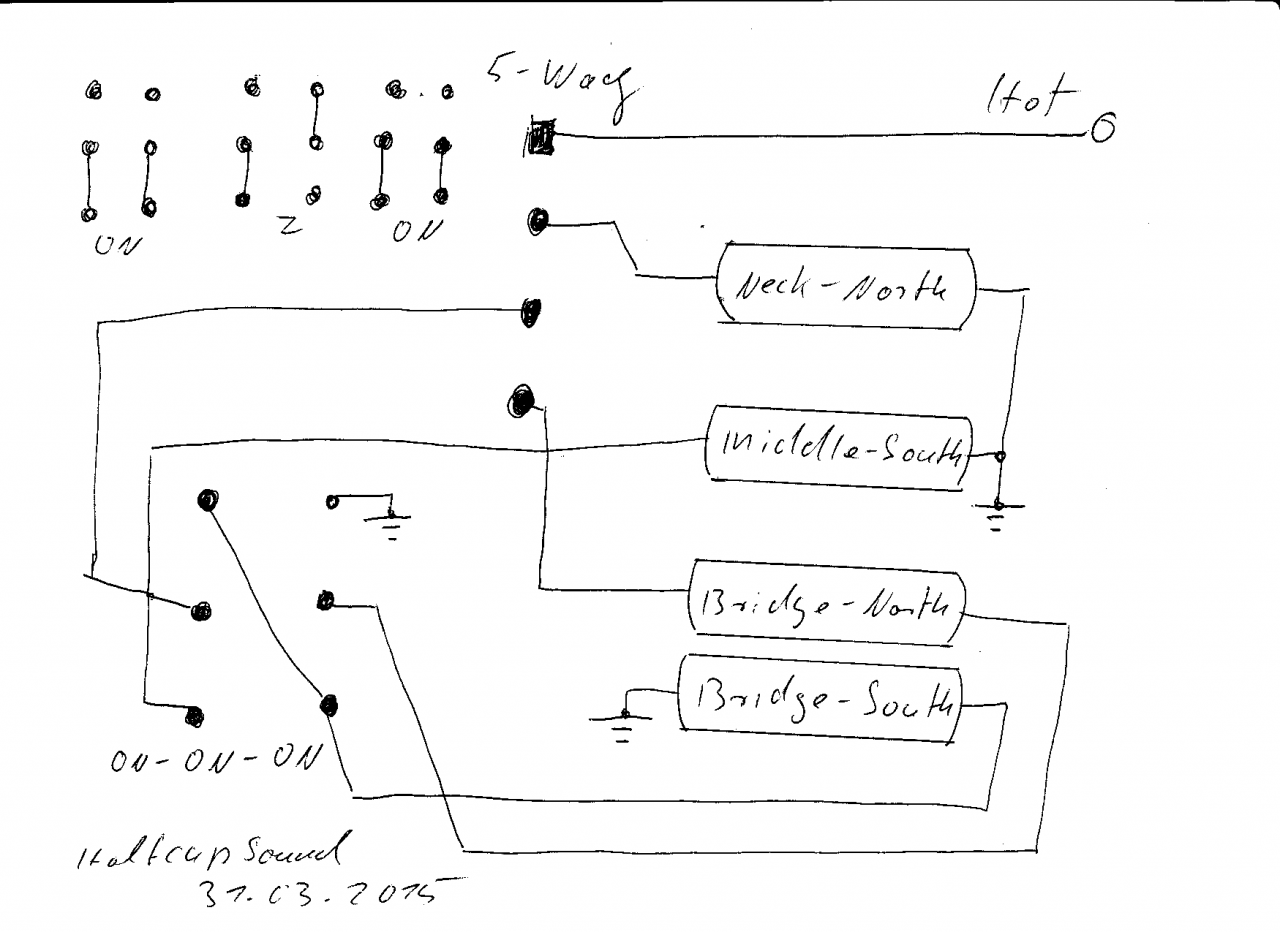 5-Way
Hot
ON
Z
ON
Neck-North
Middle-South
Bridge-North
Bridge-South
ON-ON-ON
HalfcupSound
31.03.2015